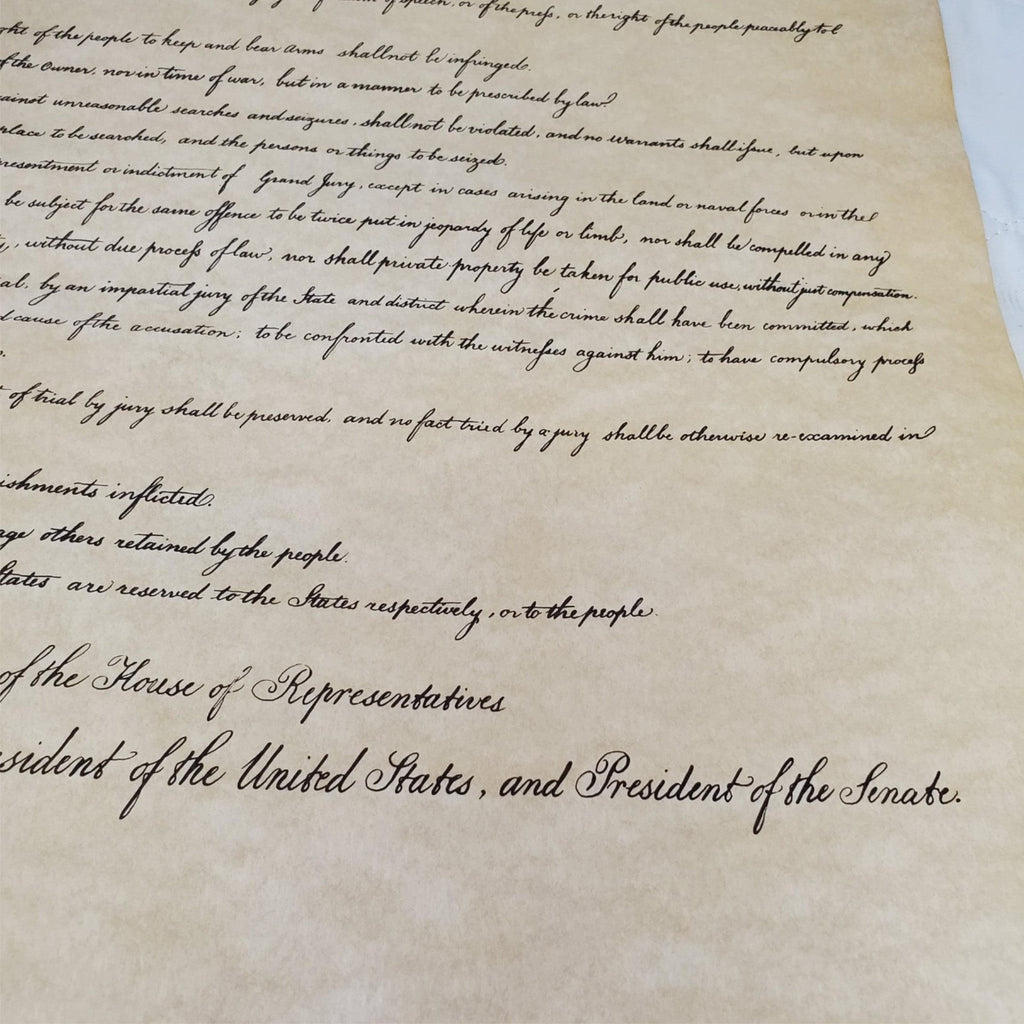 of speech, or of the press, or the right of the people peaceably to
of the people to keep and bear arms shall not be infringed.
of the Owner, nor in time of war, but in a manner to be prescribed by law.
unreasonable searches and seizures, shall not be violated, and no warrants shall issue, but upon
place to be searched, and the persons or things to be seized.
presentment or indictment of Grand Jury, except in cases arising in the land or naval forces or in the
be subject for the same offence to be twice put in jeopardy of life or limb, nor shall be compelled in any
, without due process of law, nor shall private property be taken for public use, without just compensation.
by an impartial jury of the State and district wherein the crime shall have been committed, which
cause of the accusation; to be confronted with the witnesses against him; to have compulsory process
of trial by jury shall be preserved, and no fact tried by a jury shall be otherwise re-examined in
ishments inflicted.
others retained by the people.
States are reserved to the States respectively, or to the people.
of the House of Representatives
sident of the United States, and President of the Senate.